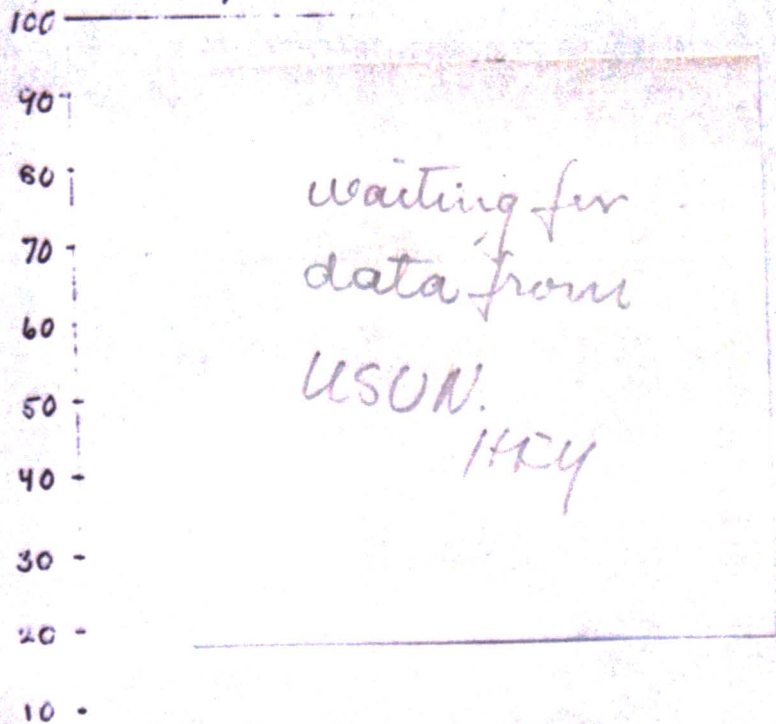 100
90
80
70
60
50
40
30
20
10
waiting for
data from
USUN.